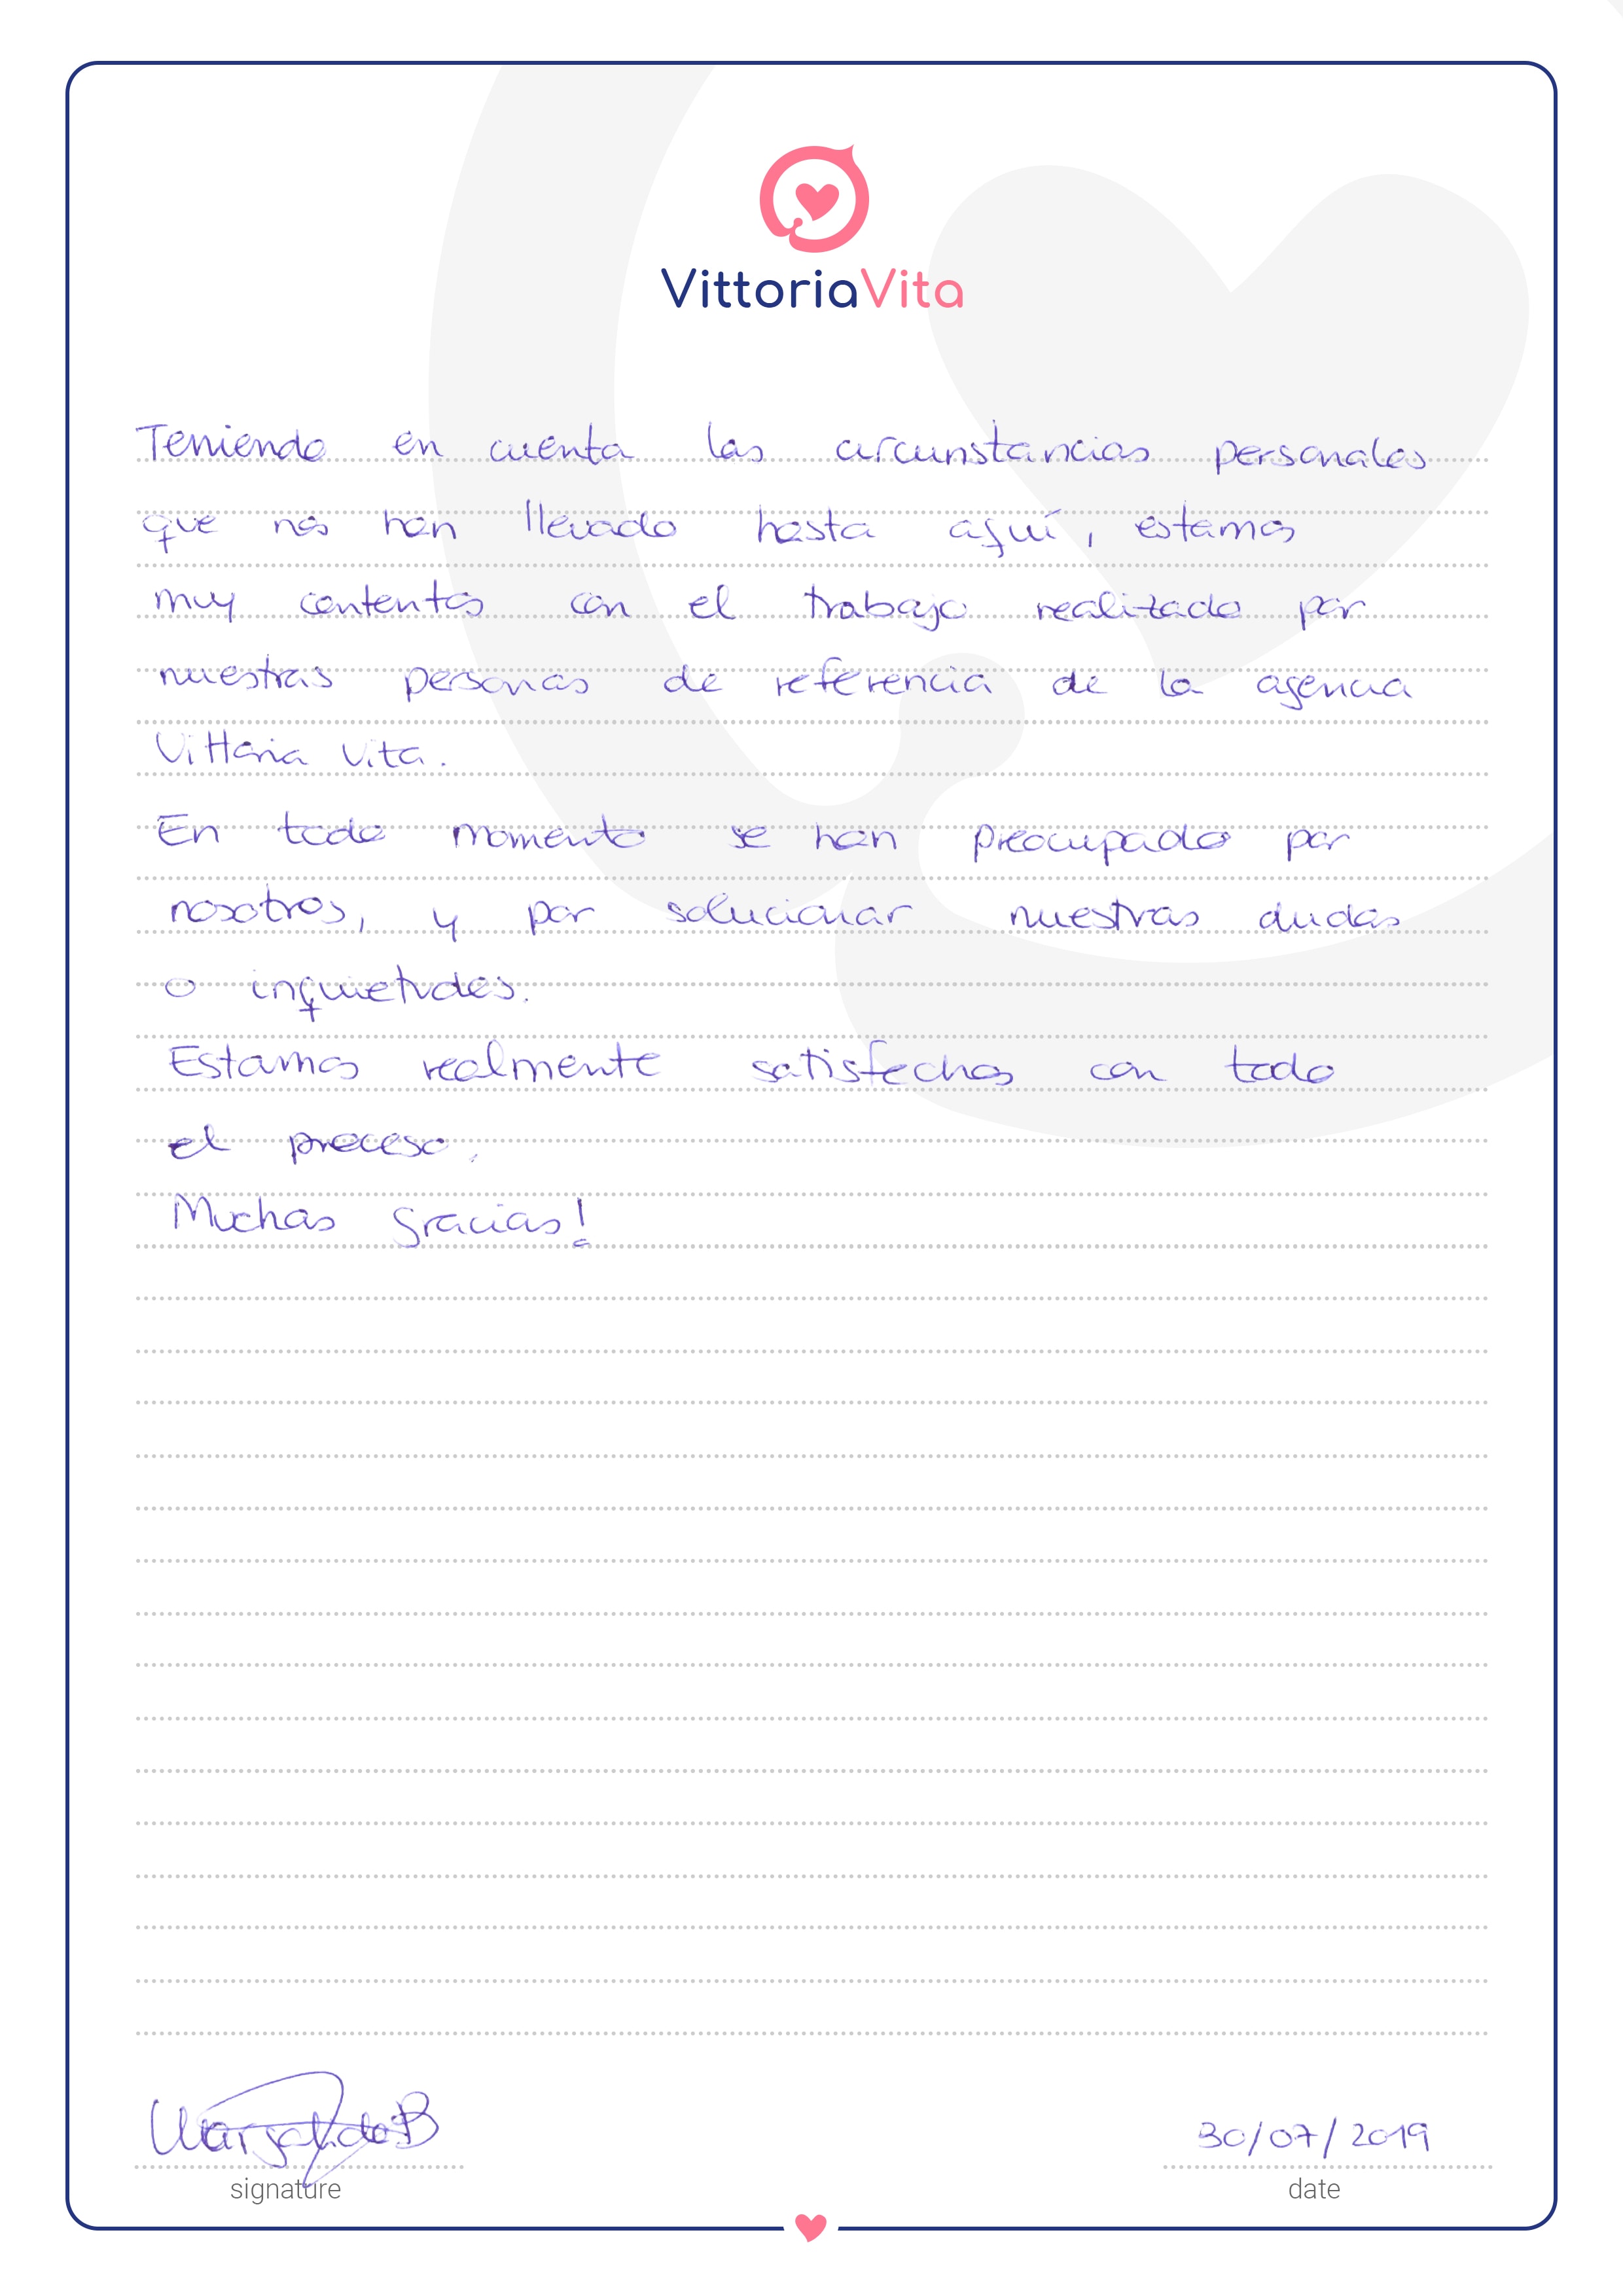 VittoriaVita
Teniendo en cuenta las circunstancias personales
que nos han llevado hasta aquí, estamos
muy contentos con el trabajo realizado por
nuestras personas de referencia de la agencia
Vittoria Vita.
En todo momento se han preocupado por
nosotros, y por solucionar nuestras dudas
o inquietudes.
Estamos realmente satisfechos con todo
el proceso.
Muchas gracias!
30/07/2019
signature date